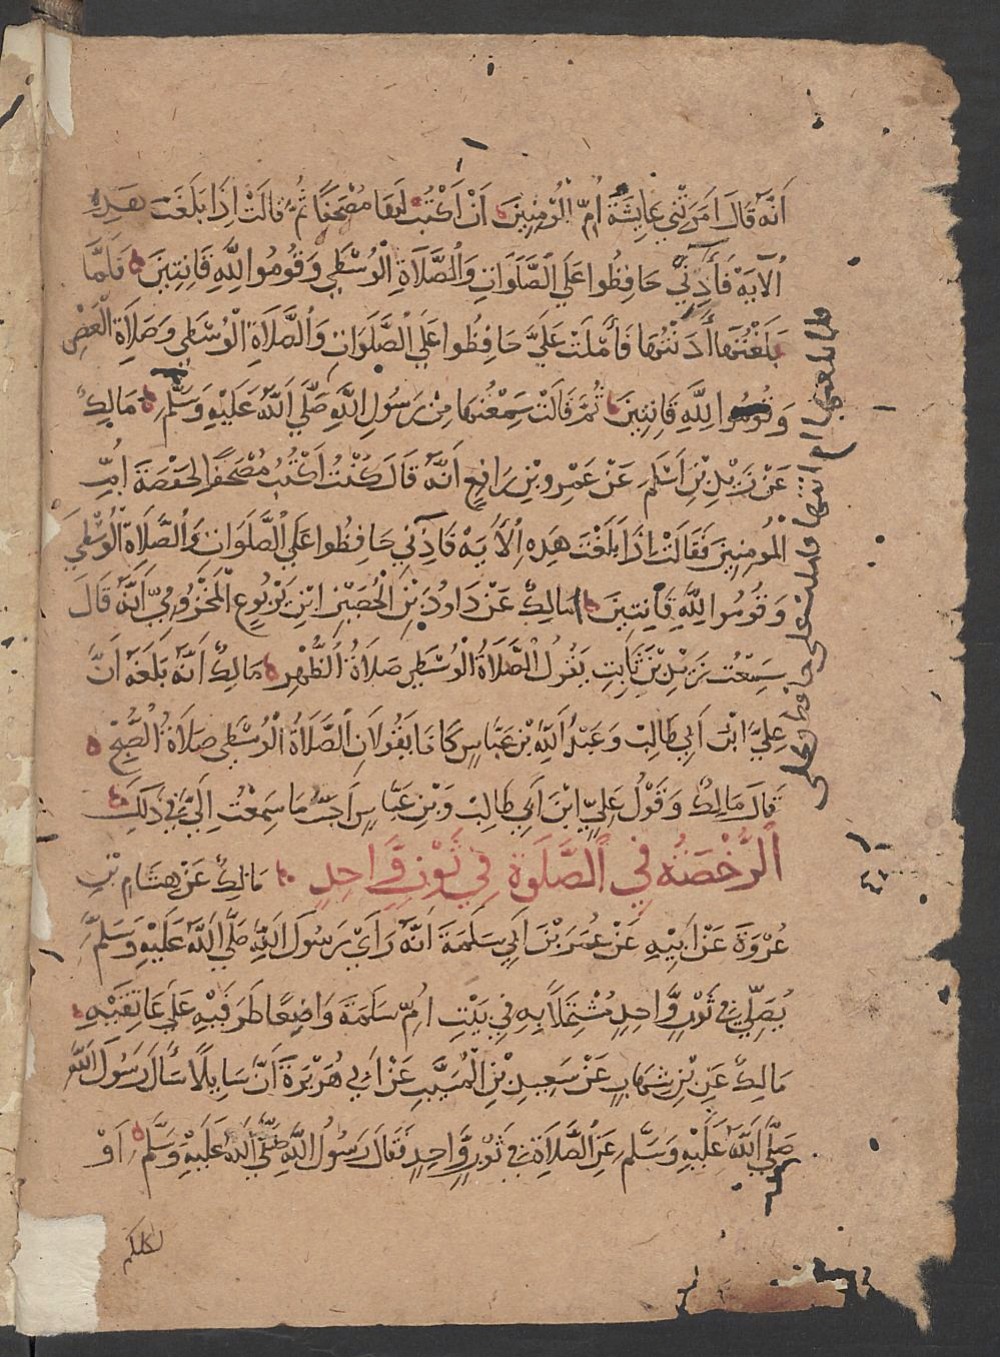 اَنَّهُ قَالَ اَمَرَتْنِي عَايِشَةُ اُمُّ الْمُؤْمِنِينَ اَنْ اَكْتُبَ لَهَا مُصْحَفًا ثُمَّ قَالَتْ اِذَا بَلَغْتَ هَذِهِ
اُلآيَةَ فَأَذِنِّي حَافِظُوا عَلَي اَلصَّلَوَاتِ وَالصَّلَاةِ الْوُسْطَي وَقُومُوا لِلَّهِ قَانِتِينَ فَلَمَّا
بَلَغْتُهَا أَذَنْتُهَا فَأَمْلَتْ عَلَيَّ حَافِظُوا عَلَي الصَّلَوَاتِ وَالصَّلَاةِ الْوُسْطَي وَصَلَاةِ الْعَصْرِ
وَقُومُوا لِلَّهِ قَانِتِينَ ثُمَّ قَالَتْ سَمِعْتُهَا مِنْ رَسُولِ اللَّهِ صَلَّي اَللَّهُ عَلَيْهِ وَسَلَّم مَالِكٌ
عَنْ زَيْدِ بْنِ اَسْلَمَ عَنْ عَمْرِو بْنِ رَافِعٍ اَنَّهُ قَالَ كُنْتُ اَكْتُبُ مُصْحَفًا لِحَفْصَةَ اُمِّ
الْمُومِنِينَ فَقَالَتْ اِذَا بَلَغْتَ هَذِهِ اِلْأَيَةَ فَاَذِنِّي حَافِظُوا عَلَي الصَّلَوَاتِ وَالصَّلَاةِ الْوُسْطَي
وَقُومُوا لِلَّهِ قَانِتِينَ مَالِكٌ عَنْ دَاوُدَ بْنِ الْحُصَيْنِ ابْنِ يَرْبُوعِ الْمَخْزُومِيِّ اَنَّهُ قَالَ
سَمِعْتُ زَيْدَ بْنَ ثَابِتٍ يَقُولُ الصَّلَاةُ الْوُسْطَي صَلَاةُ الظُّهْرِ مَالِكٌ اَنَّهُ بَلَغَهُ اَنَّ
عَلِيَّ ابْنَ اَبِي طَالِبْ وَعَبْدَ اَللَّهِ بْنَ عَبَّاسٍ كَانَا يَقُولَانِ الصَّلَاةُ الْوُسْطَي صَلَاةُ الصُّبْحِ
قَالَ مَالِكٌ وَقَوْلُ عَلِيِّ ابْنِ اَبِي طَالِبْ وَبْنِ عَبَّاسٍ اَحَبُّ مَا سَمِعْتُ اِلَيَّ فِي ذَلِكَ
اَلرُّخْصَةُ فِي اَلصَّلَوةِ فِي ثَوْبٍ وَّاحِدٍ مَالِكٌ عَنْ هِشَامِ بْنِ
عُرْوَةَ عَنْ اَبِيهِ عَنْ عُمَرَ بْنِ اَبِي سَلَمَةَ اَنَّهُ رَاَي رَسُولَ اللَّهِ صَلَّي اَللَّهُ عَلَيْهِ وَسَلَّمَ
يُصَلِّي فِي ثَوْبٍ وَّاحِدٍ مُشْتَمِلًا بِهِ فِي بَيْتِ اُمِّ سَلَمَةَ وَاضِعًا طَرَفَيْهِ عَلَي عَاتِقَيْهِ
مَالِكٌ عَنِ بْنِ شِهَابٍ عَنْ سَعِيدِ بْنِ الْمُسَيَّبِ عَنْ اَبِي هُرَيْرَةَ اَنَّ سَايِلًا سَأَلَ رَسُولَ اللَّهِ
صَلَّي اَللَّهُ عَلَيْهِ وَسَلَّم عَنِ الصَّلَاةِ فِي ثَوْبٍ وَّاحِدٍ فَقَالَ رَسُولُ اللَّهِ صَلَّي اَللَّهُ عَلَيْهِ وَسَلَّم اَوْ
لكلكم